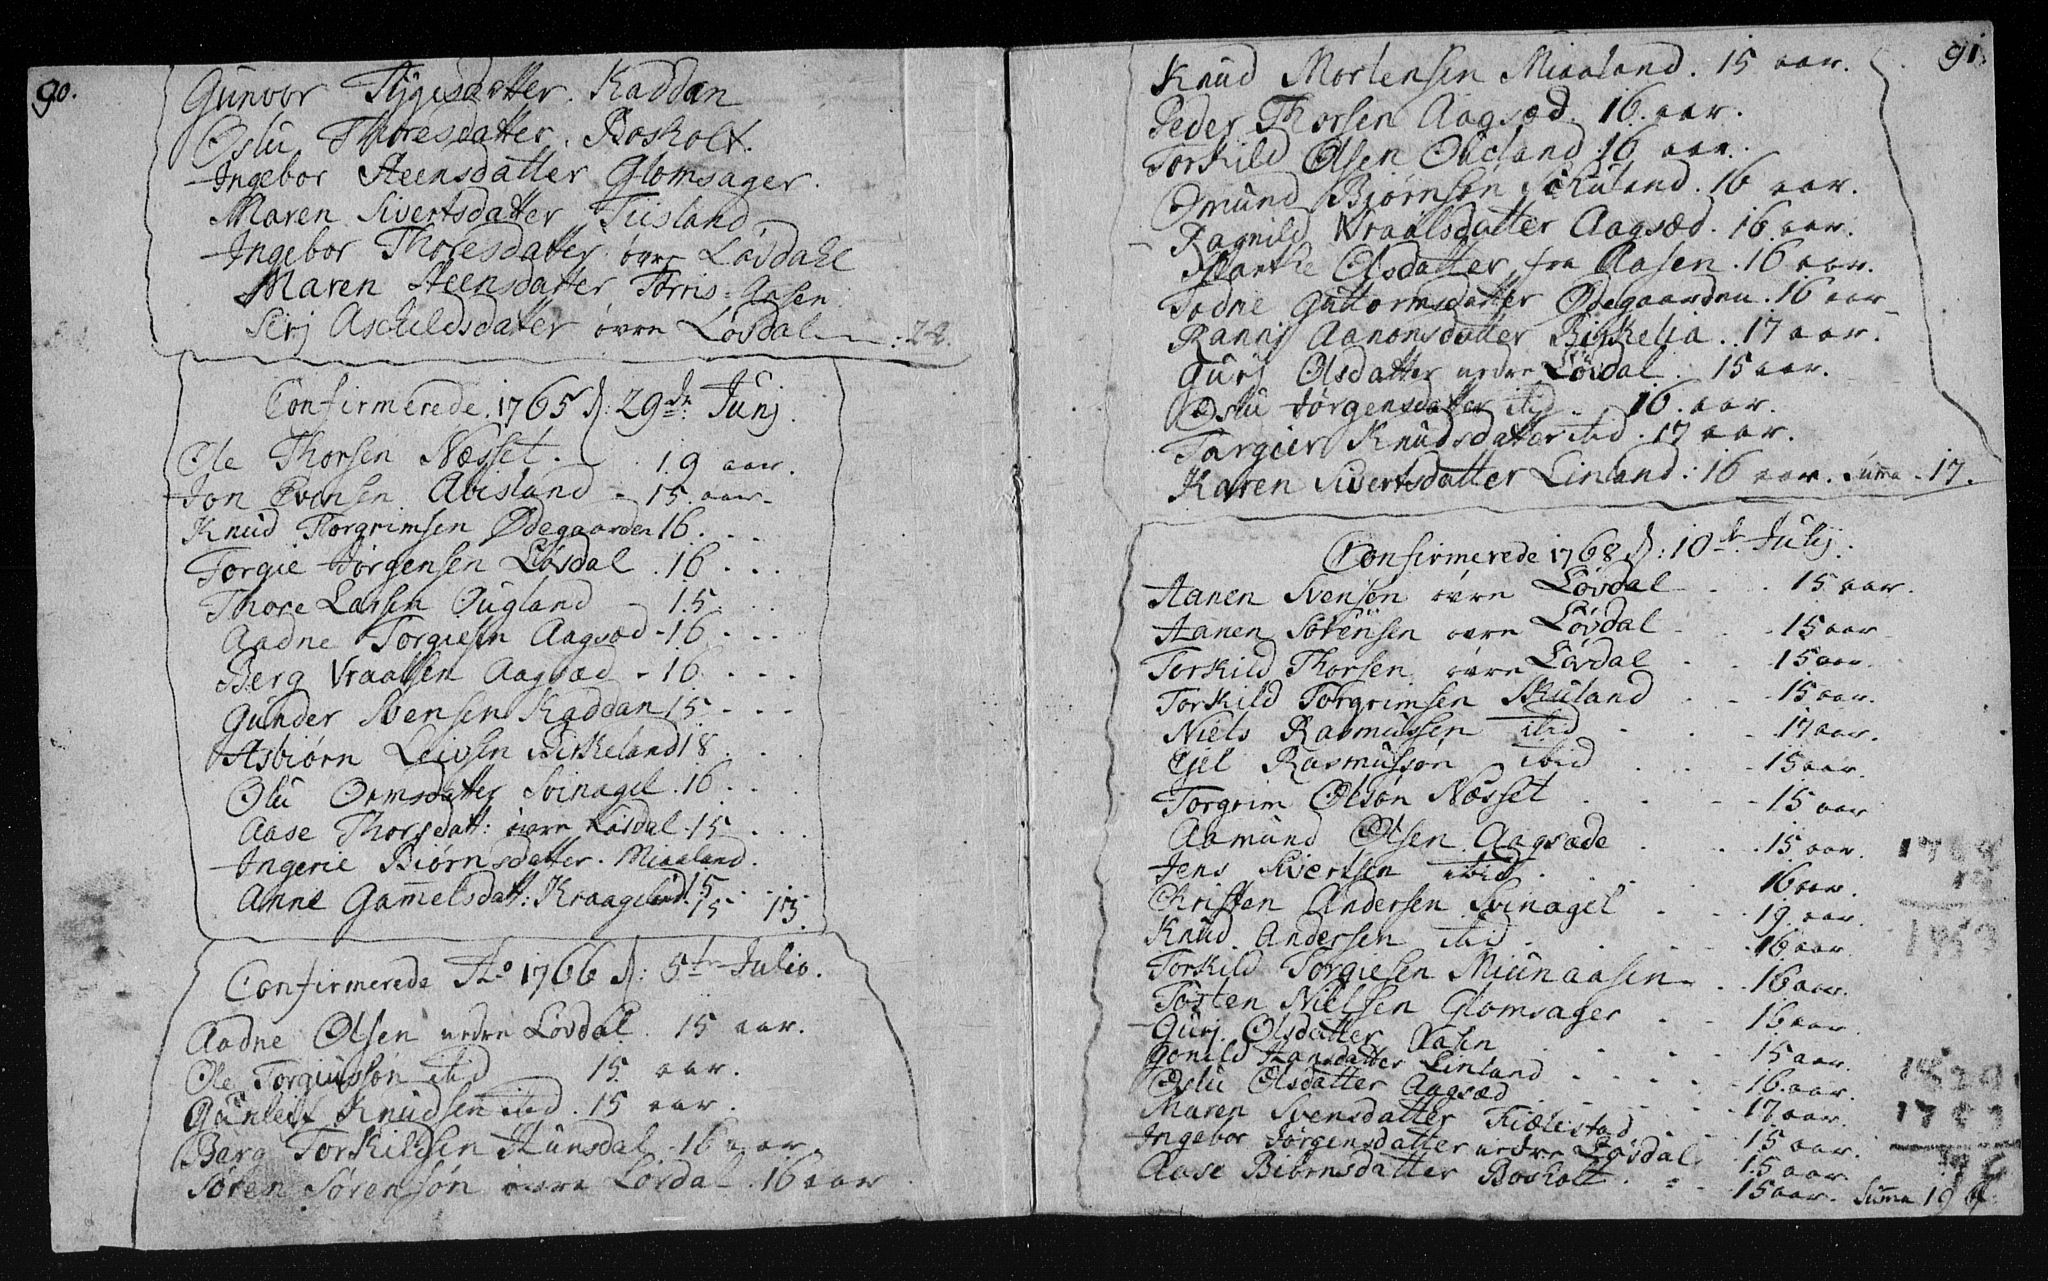 90.
Gunvor Tygesdatter. Kaddan
Oslu Thoresdatter. Bosholt.
Ingebor Steensdatter Glomsager.
Maren Sivertsdatter Tiisland
Ingebor Thoresdatter øvre Løvdahl
Maren Steensdatter Torris-Aasen
Sirj Aschildsdatter øvre Løvdal : 22.
Confirmerede 1765 d: 29de Junj.
Ole Thorsen Næsset. 19 aar.
Jon Evensen Abisland - 15. aar-
Knud Thorgrimsen Ødegaarden 16. . . .
Torgie Jørgensen Løvdal . 16 . . .
Thore Larsen Ougland - 15 . . .
Aadne Torgiesen Aagsæd - 16 . . .
Berg Vraalsen Aagsæd - 16 . . . .
Gunder Svensen Kaddan 15 - - -
Asbiørn Leivsen Birkeland 18 . . .
Olu Ormsdatter Svinagel . 16 . . .
Aase Thorsdatt: øvre Løvdal - 15 . . .
Ingerie Biørnsdatter. Miaaland. 15
Anne Gamelsdatt: Kraageland. 15 - 13.
Confirmerede Ao 1766 d: 5te Julio.
Aadne Olsen nedre Løvdal. 15 aar.
Ole Torgiusson ibid 15 aar.
Gunleif Knudsen ibid. 15 aar.
Berg Torkildsen Hunsdal - 16 aar
Søren Sørensøn øvre Løvdal - 16 aar
91.
Knud Mortensen Miaaland. 15 aar.
Peder Thorsen Aagsæd. 16. aar.
Torkild Olsen 16 aar.
Omund Bjørnsøn Skuland. 16 aar.
Ragnild Vraalsdatter Aagsæd. 16. aar.
Marthe Olsdatter fra Aasen. 16 aar.
Todne Guttormsdatter Ødegaarden. 16 aar
Rannj Aanonsdatter Birkelia. 17 aar.
Gurj Olsdatter nedre Løvdal. 15 aar.
Oslu Jørgensdatter ibid. 16. aar.
Targier Knudsdatter ibid. 17 aar.
Karen Sivertsdatter Linland: 16 aar. Suma - 17.
Confirmerede 1768 d: 10de Julij.
Aanen Svensøn øvre Løvdal - . . 15 aar.
Aanen Sørensen øvre Løvdal - . . 15 aar
Torkild Thorsen øvre Løvdal . . 15 aar.
Torkild Torgrimsen Skuland . - 15 aar.
Niels Rasmussen ibid . . - 17 aar.
Ejel Rasmussøn ibid . . - 15 aar.
Torgrim Olsøn Næsset . . - 15 aar
Aamund Olsen Aagsæde . . - 15 aar.
Jens Sivertsen ibid . . . 16 aar.
Christen Andersen Svinagel . . 19. aar
Knud. Andersen ibid . . . 16 aar
Torkild Torgiesen Miunaasen - . 16 aar.
Torsten Nielsen Glomsager . - 16 aar.
Gurj. Olsdatter Aasen . . - 15 aar.
Gonild Hansdatter Linland . . . 16. aar.
Oslu Olsdatter Aagsæd . . - 17 aar.
Maren Svensdatter Kiælestad . - 15 aar.
Ingebor Jørgensdatter nedre Løvdal . 15 aar.
Aase Biørnsdatter Bosholt . - 15 aar. Suma 19